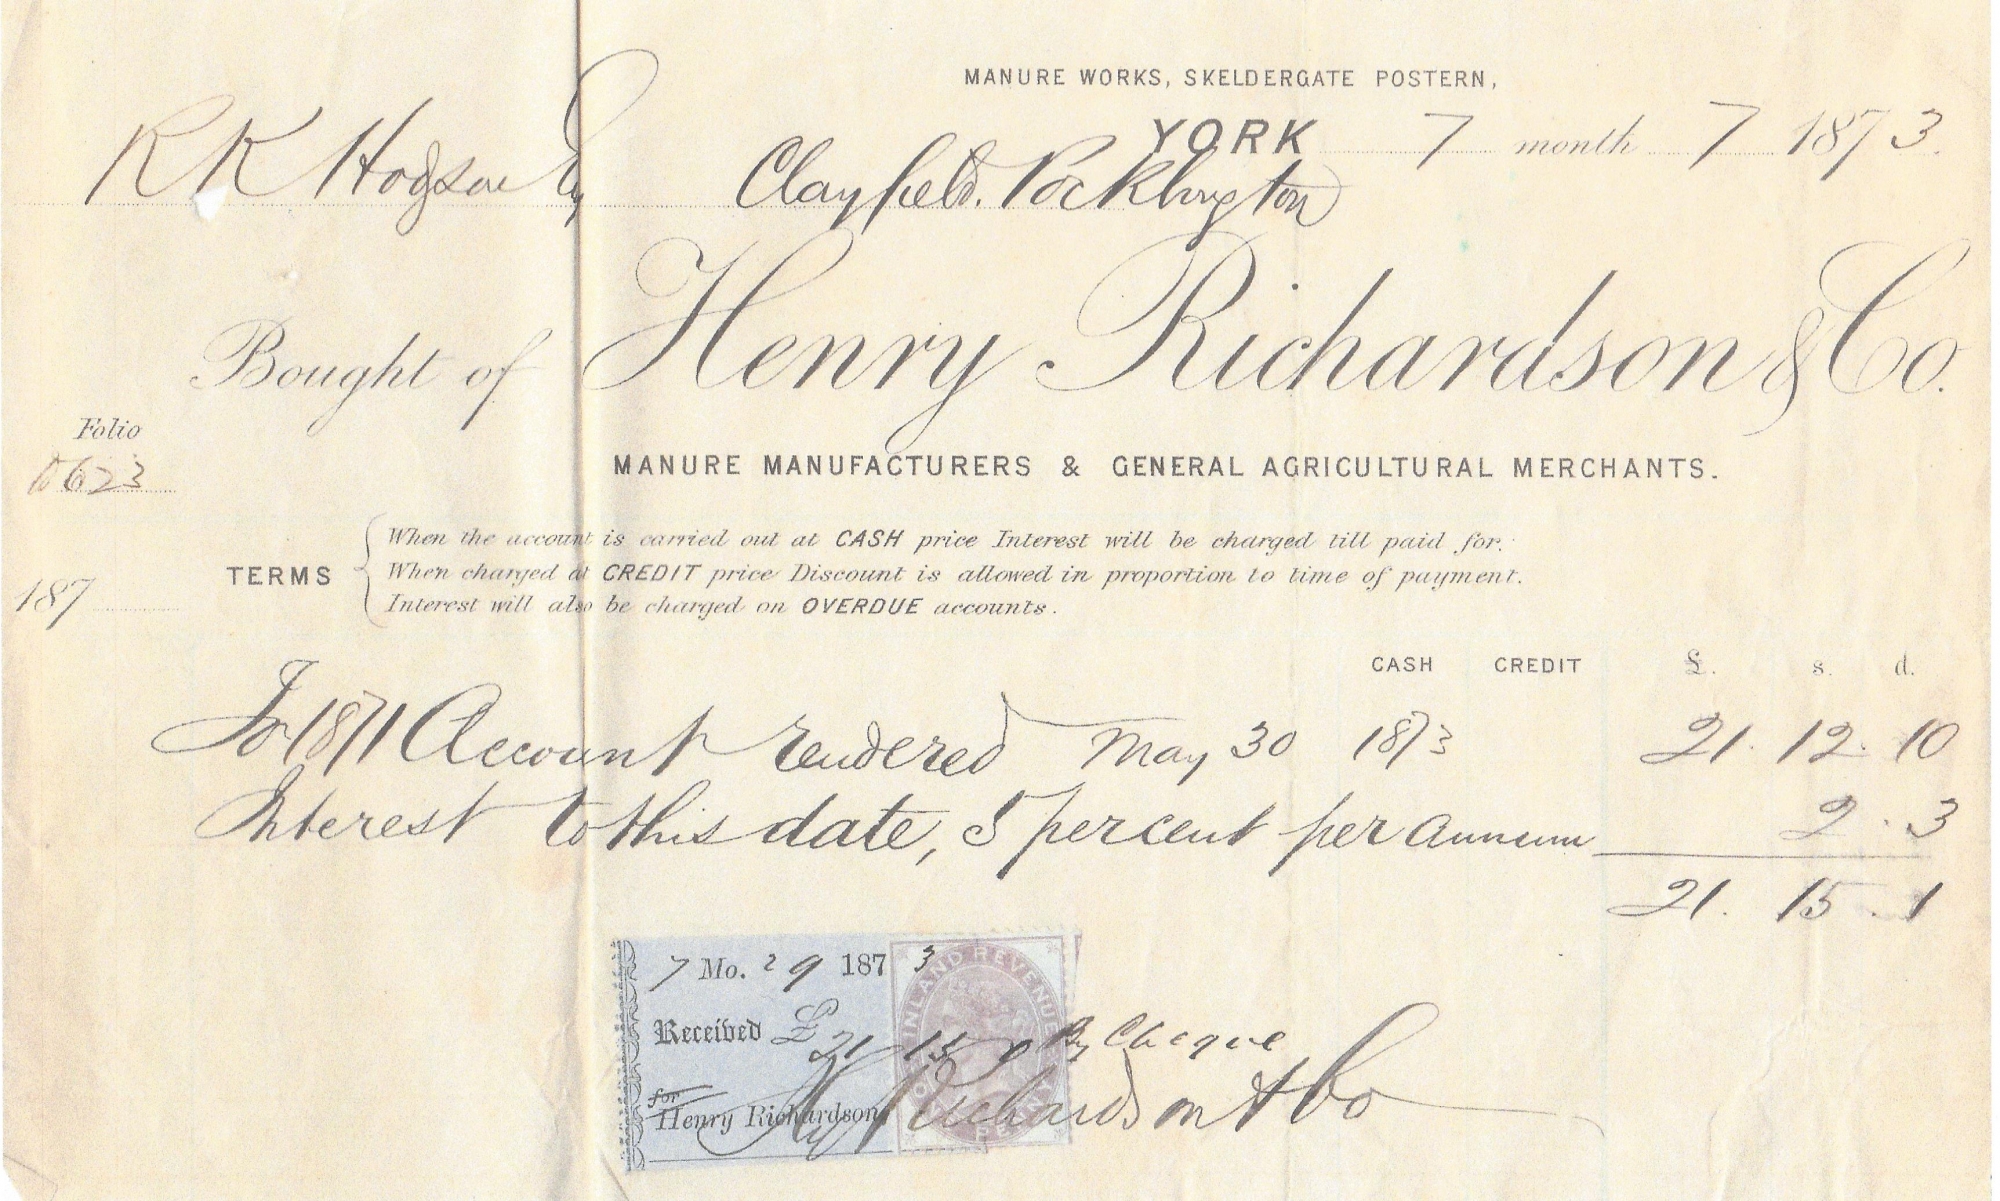 MANURE WORKS, SKELDERGATE POSTERN,
YORK 7 month 7 1873.
R K Hodgson Esq Clayfield. Pocklington
Bought of Henry Richardson & Co.
Folio
623
MANURE MANUFACTURERS & GENERAL AGRICULTURAL MERCHANTS.
187
TERMS
When the account is carried out at CASH price Interest will be charged till paid for.
When charged at CREDIT price Discount is allowed in proportion to time of payment.
Interest will also be charged on OVERDUE accounts.
CASH CREDIT £. s. d.
To 1871 Account rendered May 30 1873 21. 12. 10
Interest to this date, 5 per cent per annum 2. 3
21. 15. 1
7 Mo. 29 1873
INLAND REVENUE
Received £21 15 By Cheque
for Henry Richardson
Hy Richardson & Co